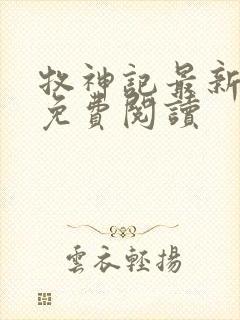 牧神記最新
免費閱讀
雲衣輕揚